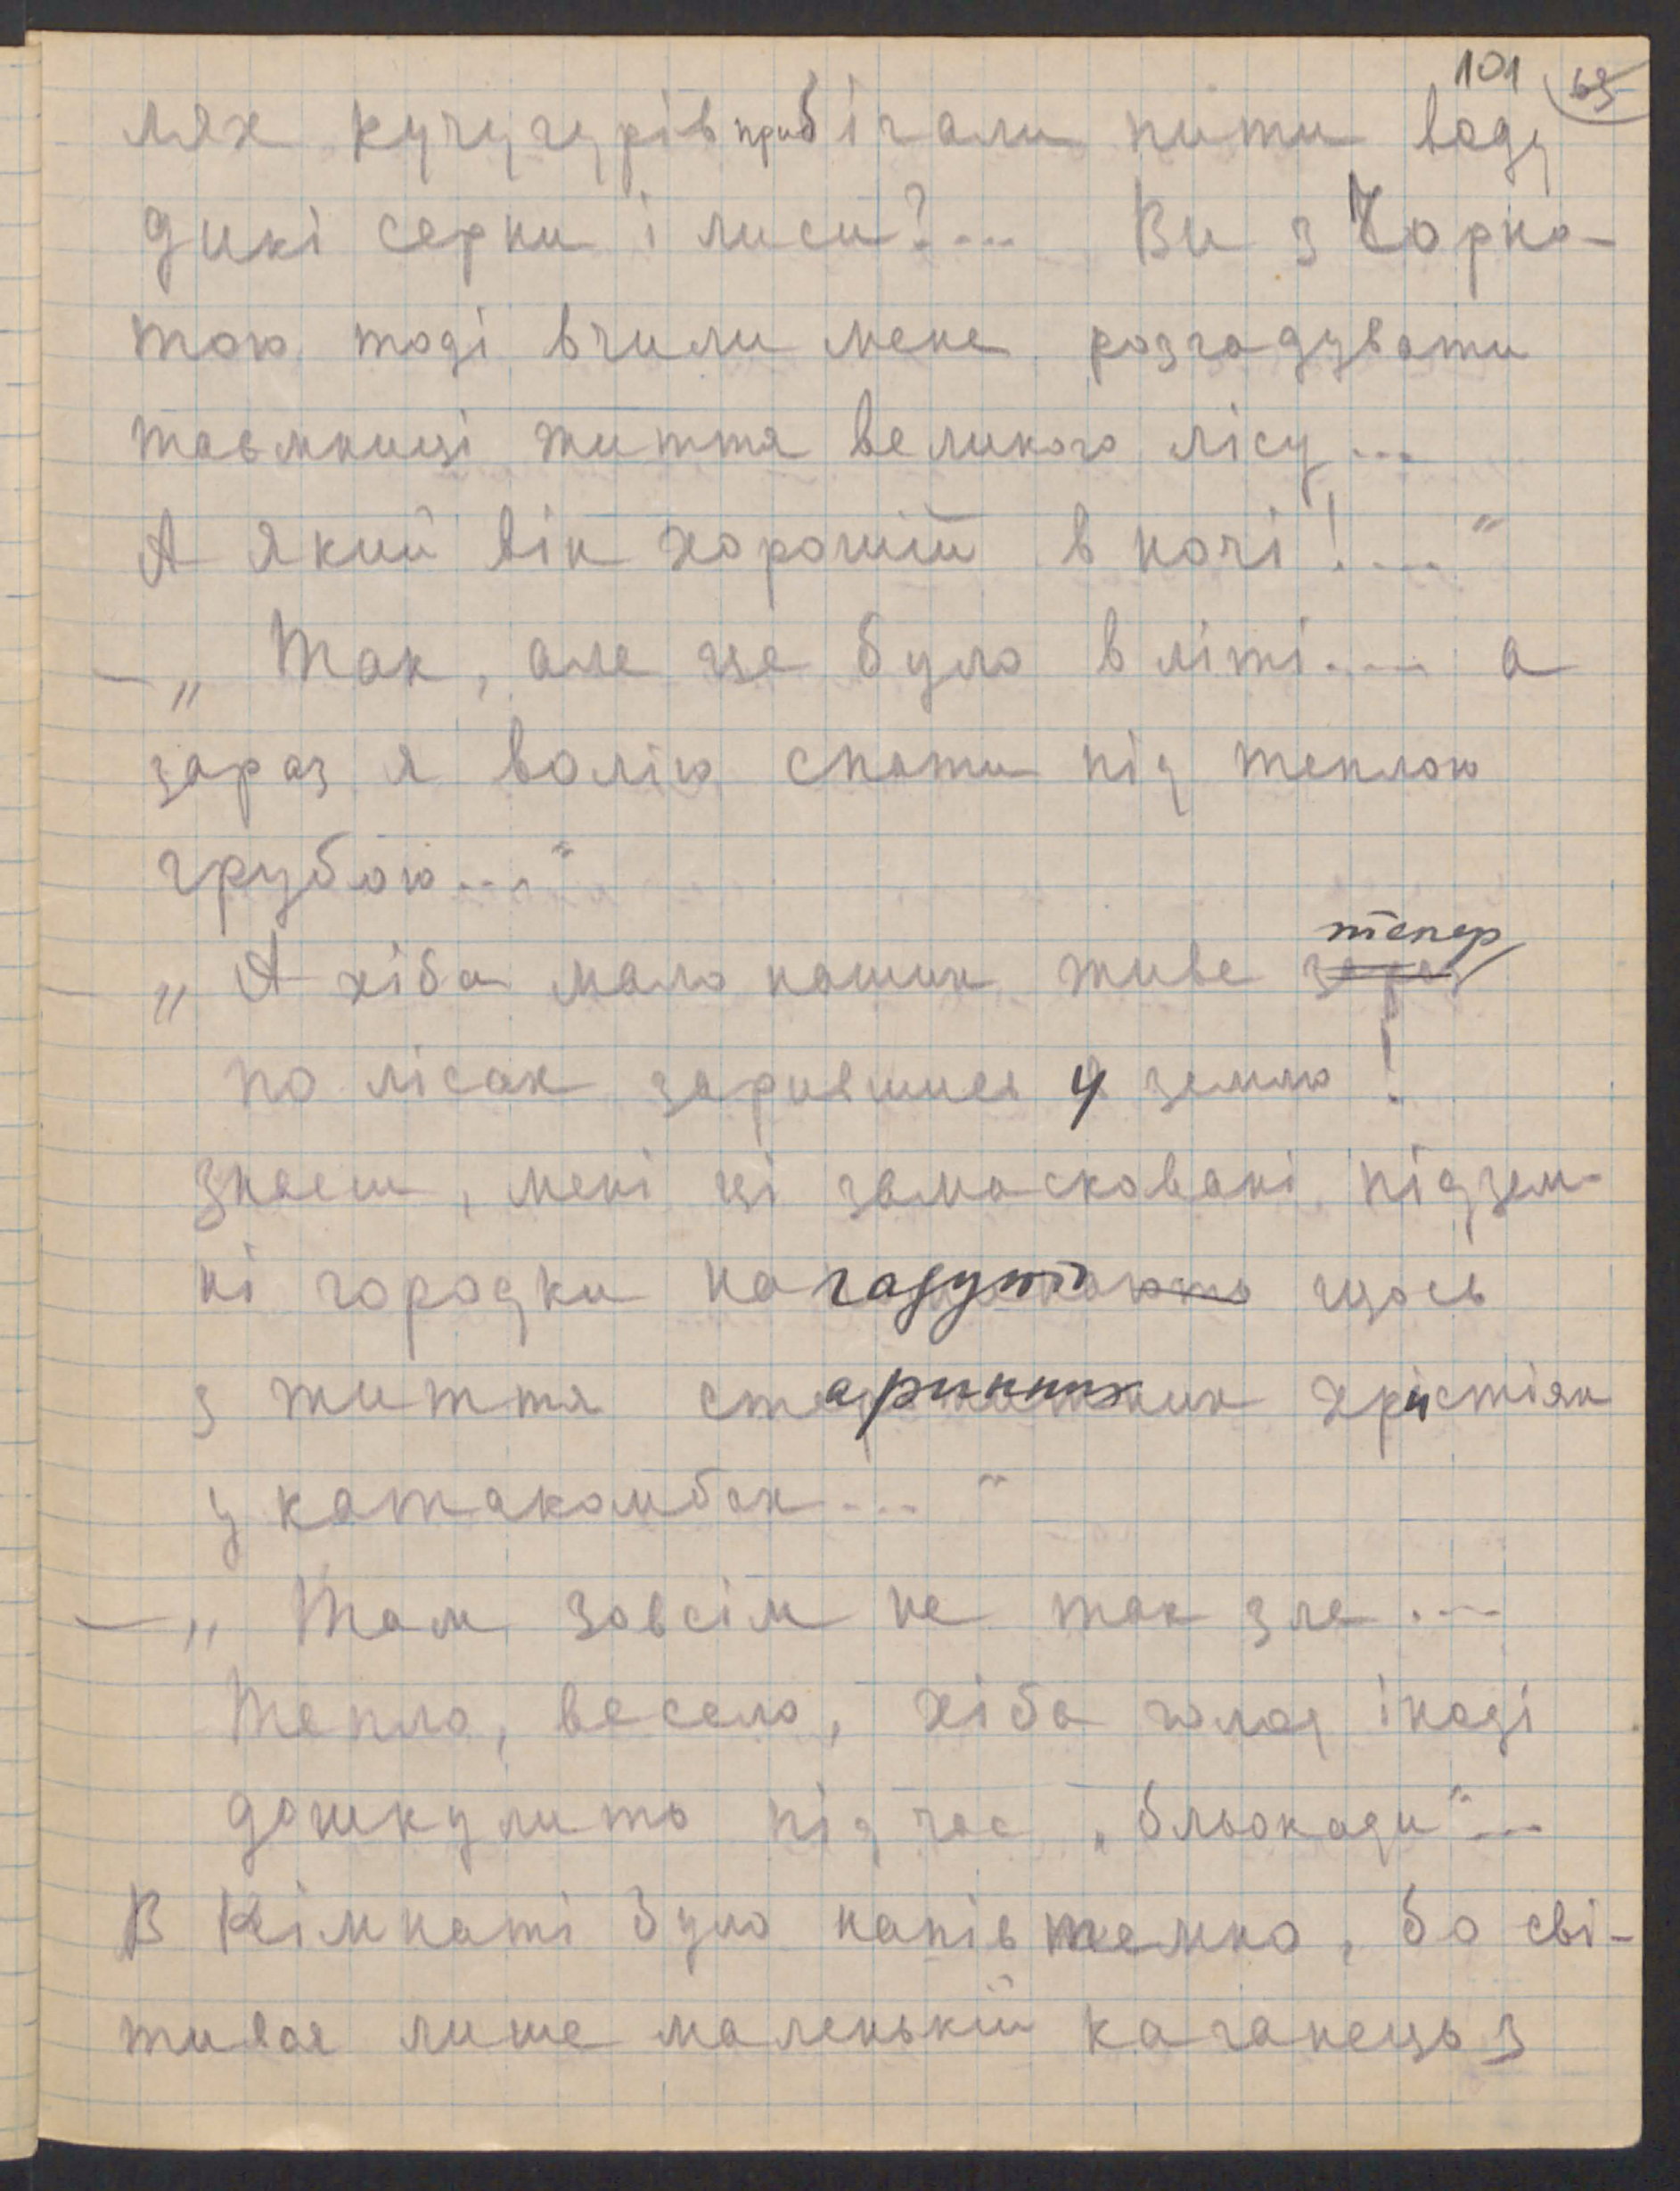 101 63
лях кучугурів прибігали пити воду
дикі серни і лиси?... Ви з Чорно-
тою тоді вчили мене розгадувати
таємниці життя великого лісу...
А який він хороший в ночі!..."
— „Так, але це було в літі.... а
зараз я волію спати під теплою
грубою..."
тепер
— „А хіба мало наших живе зараз
по лісах зарившись у землю!
Знаєш, мені ці замасковані підзем-
ні городки нагадують щось
з життя старинних християн
у катакомбах..."
— „Там зовсім не так зле...
Тепло, весело, хіба голод іноді
дошкулить під час „бльокади"...
В кімнаті було напівтемно, бо сві-
тивая лише маленький каганець з